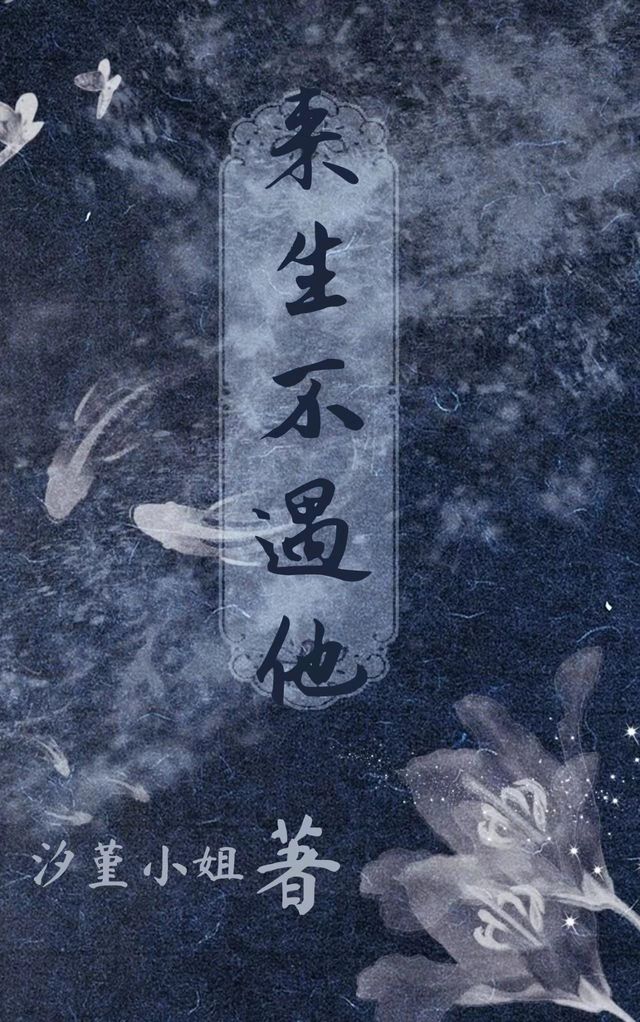 来生不遇他
汐堇小姐著